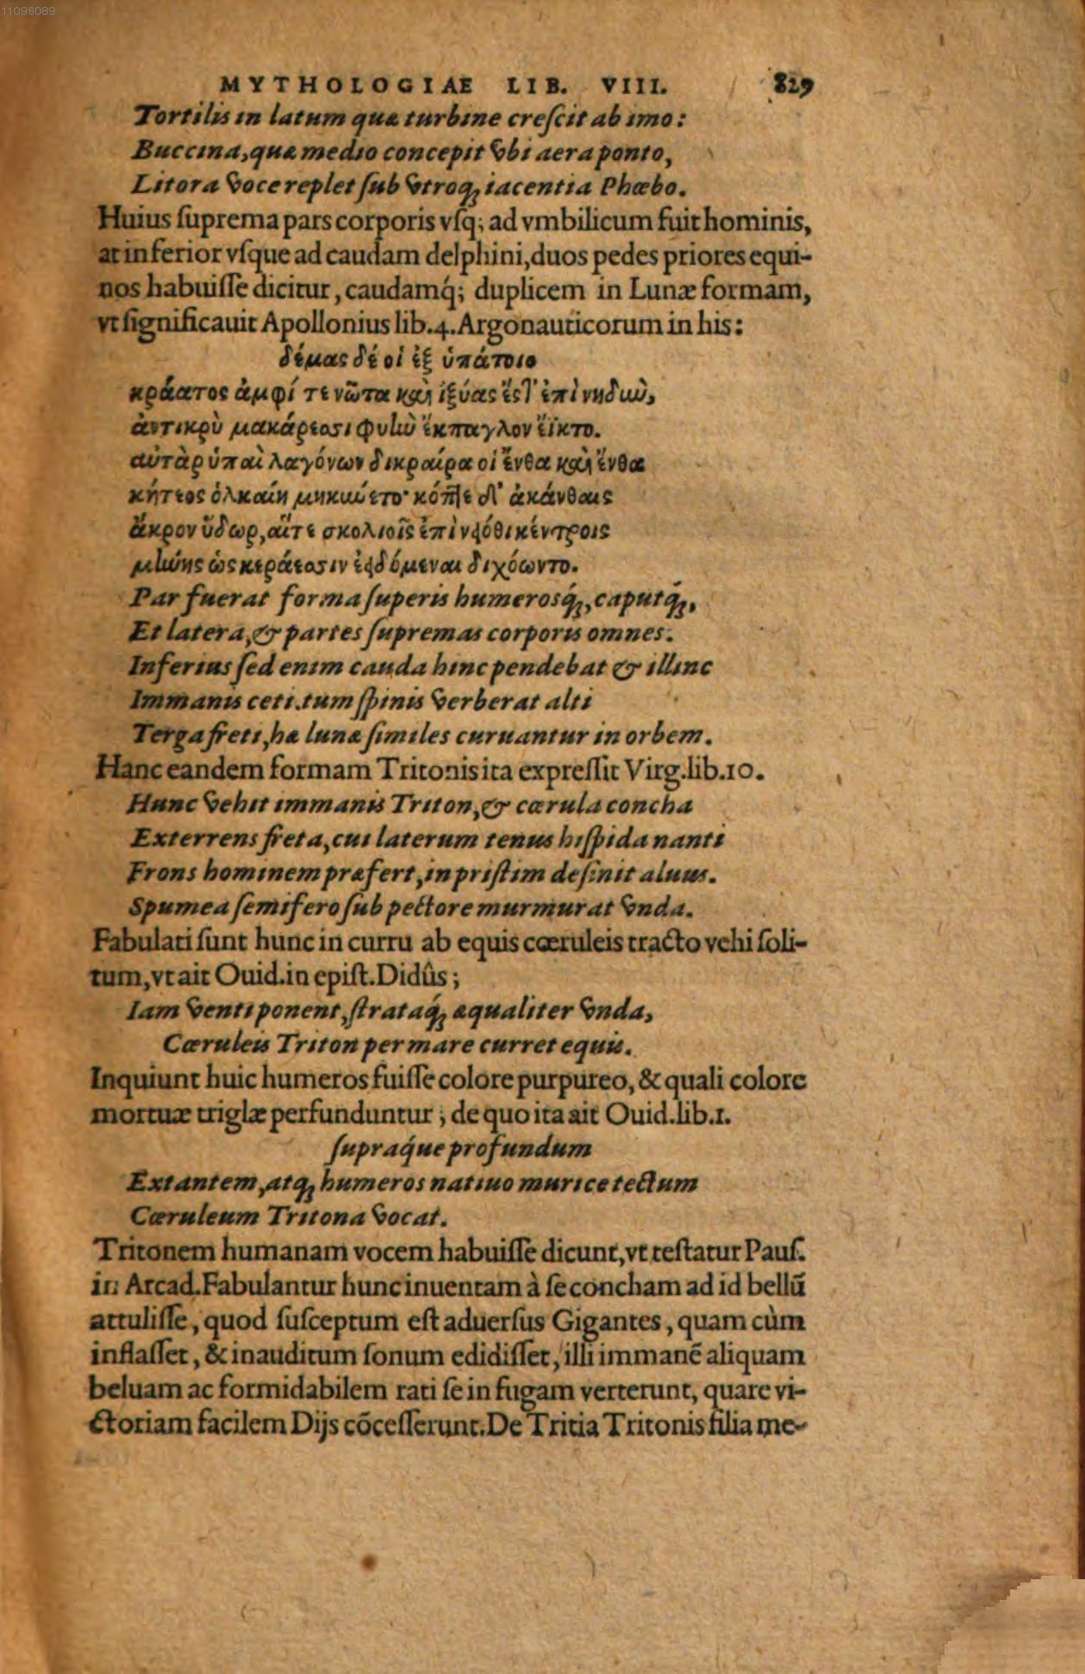 11098089
MYTHOLOGIAE LIB. VIII. 829
Tortilis in latum quæ turbine creſcit ab imo:
Buccina, quæ medio concepit vbi aera ponto,
Litora voce replet ſub vtroq; iacentia Phœbo.
Huius ſuprema pars corporis vſq; ad vmbilicum fuit hominis,
at inferior vſque ad caudam delphini, duos pedes priores equi-
nos habuiſſe dicitur, caudamq́; duplicem in Lunæ formam,
vt ſignificauit Apollonius lib. 4. Argonauticorum in his:
δέμας δέ οἱ ἐξ ὑπάτοιο
κράατος ἀμφί τε νῶτα καὶ ἰξύας ἔστ' ἐπὶ νηδὺν,
ἀντικρὺ μακάρεσσι φυὴν ἔκπαγλον ἔϊκτο.
αὐτὰρ ὑπαὶ λαγόνων δικραίρα οἱ ἔνθα καὶ ἔνθα
κήτεος ὁλκαίη μηκύνετο· κόπτε δ' ἀκάνθαις
ἄκρον ὕδωρ, αἵτε σκολιοῖς ἐπὶ νειόθι κέντροις
μήνης ὡς κεράεσσιν ἐειδόμεναι διχόωντο.
Par fuerat forma ſuperis humerosq́;, caputq́;,
Et latera, & partes ſupremas corporis omnes.
Inferius ſed enim cauda hinc pendebat & illinc
Immanis ceti. tum ſpinis verberat alti
Terga freti, hæ lunæ ſimiles curuantur in orbem.
Hanc eandem formam Tritonis ita expreſſit Virg. lib. 10.
Hunc vehit immanis Triton, & cœrula concha
Exterrens freta, cui laterum tenus hiſpida nanti
Frons hominem præfert, in priſtim deſinit aluus.
Spumea ſemifero ſub pectore murmurat vnda.
Fabulati ſunt hunc in curru ab equis cœruleis tracto vehi ſoli-
tum, vt ait Ouid. in epiſt. Didûs;
Iam venti ponent, ſtrataq́; æqualiter vnda,
Cœruleis Triton per mare curret equis.
Inquiunt huic humeros fuiſſe colore purpureo, & quali colore
mortuæ triglæ perfunduntur; de quo ita ait Ouid. lib. 1.
ſupraq́ue profundum
Extantem, atq; humeros natiuo murice tectum
Cœruleum Tritona vocat.
Tritonem humanam vocem habuiſſe dicunt, vt teſtatur Pauſ.
in Arcad. Fabulantur hunc inuentam à ſe concham ad id bellũ
attuliſſe, quod ſuſceptum eſt aduerſus Gigantes, quam cùm
inflaſſet, & inauditum ſonum edidiſſet, illi immanẽ aliquam
beluam ac formidabilem rati ſe in fugam verterunt, quare vi-
ctoriam facilem Dijs cõceſſerunt. De Tritia Tritonis filia me-